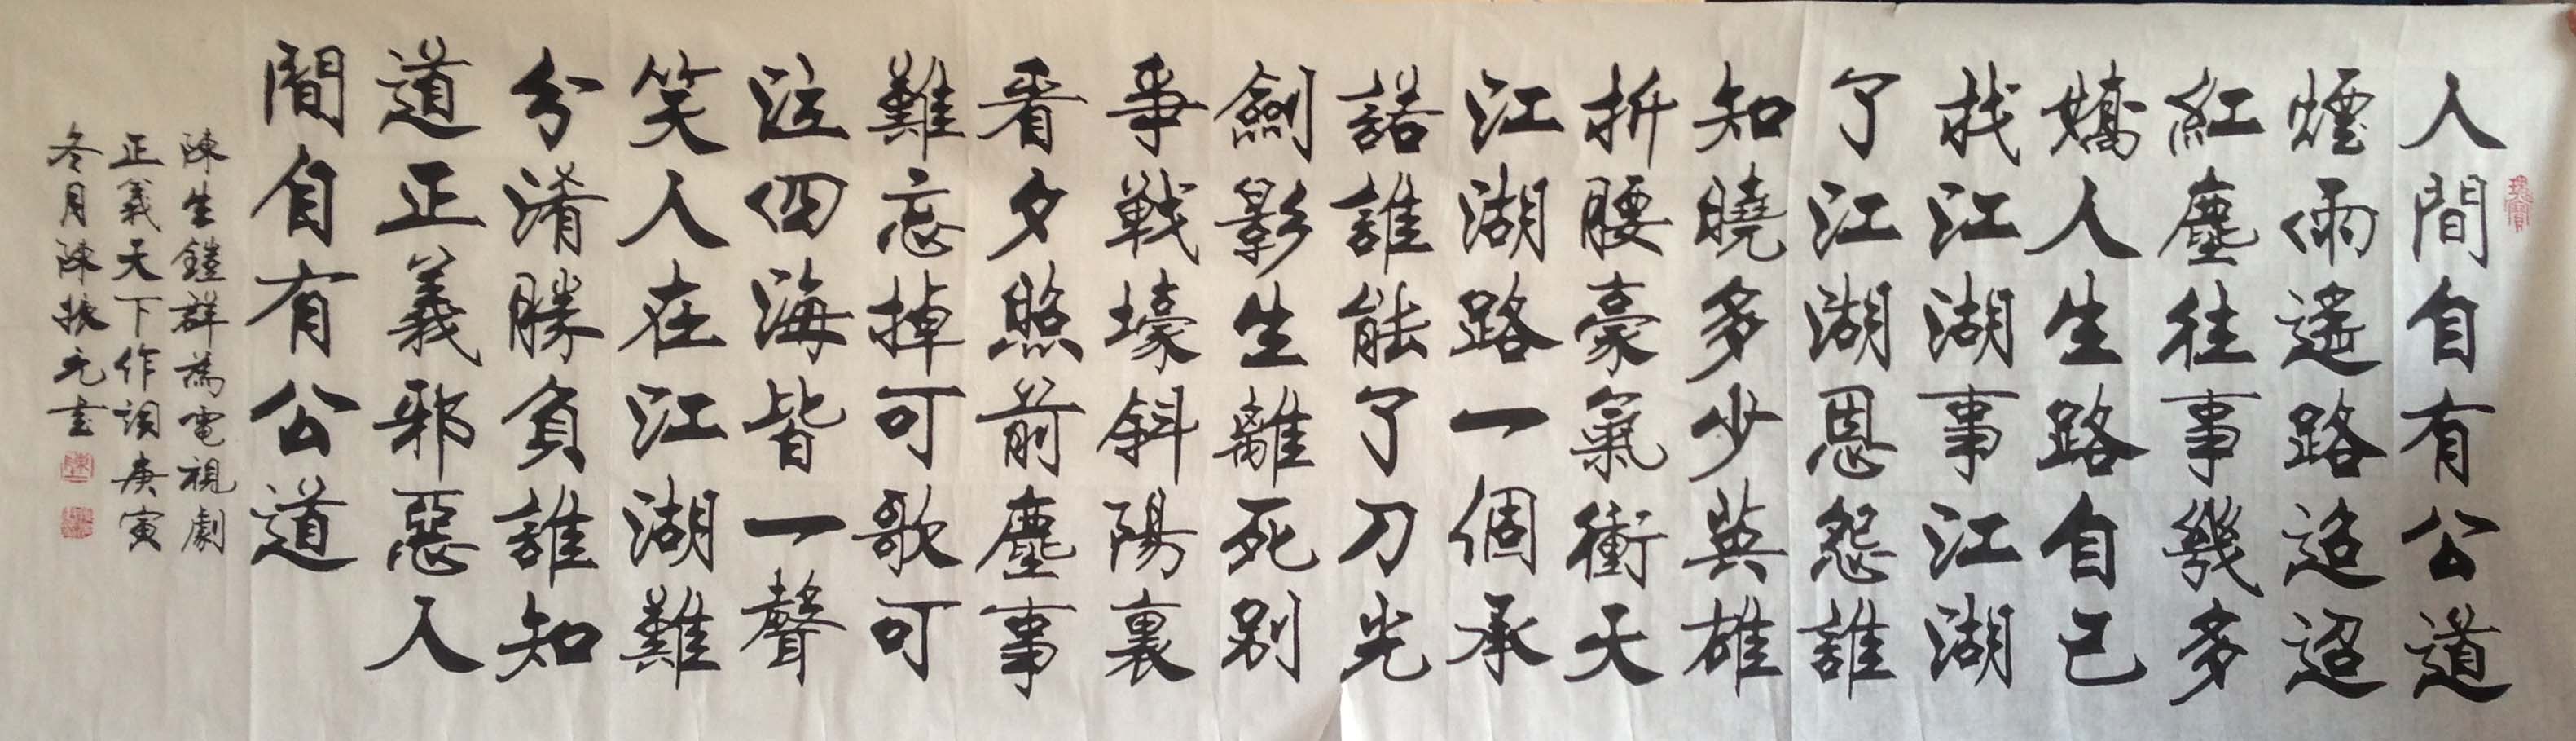 人間自有公道
煙雨遙路迢迢
紅塵往事幾多
嬌人生路自己
找江湖事江湖
了江湖恩怨誰
知曉多少英雄
折腰豪氣衝天
江湖路一個承
諾誰能了刀光
劍影生離死別
爭戰壕斜陽裏
看夕照前塵事
難忘掉可歌可
泣四海皆一聲
笑人在江湖難
分淆勝負誰知
道正義邪惡人
間自有公道
陳生鎧群為電視劇
正義天下作詞庚寅
冬月陳振元書